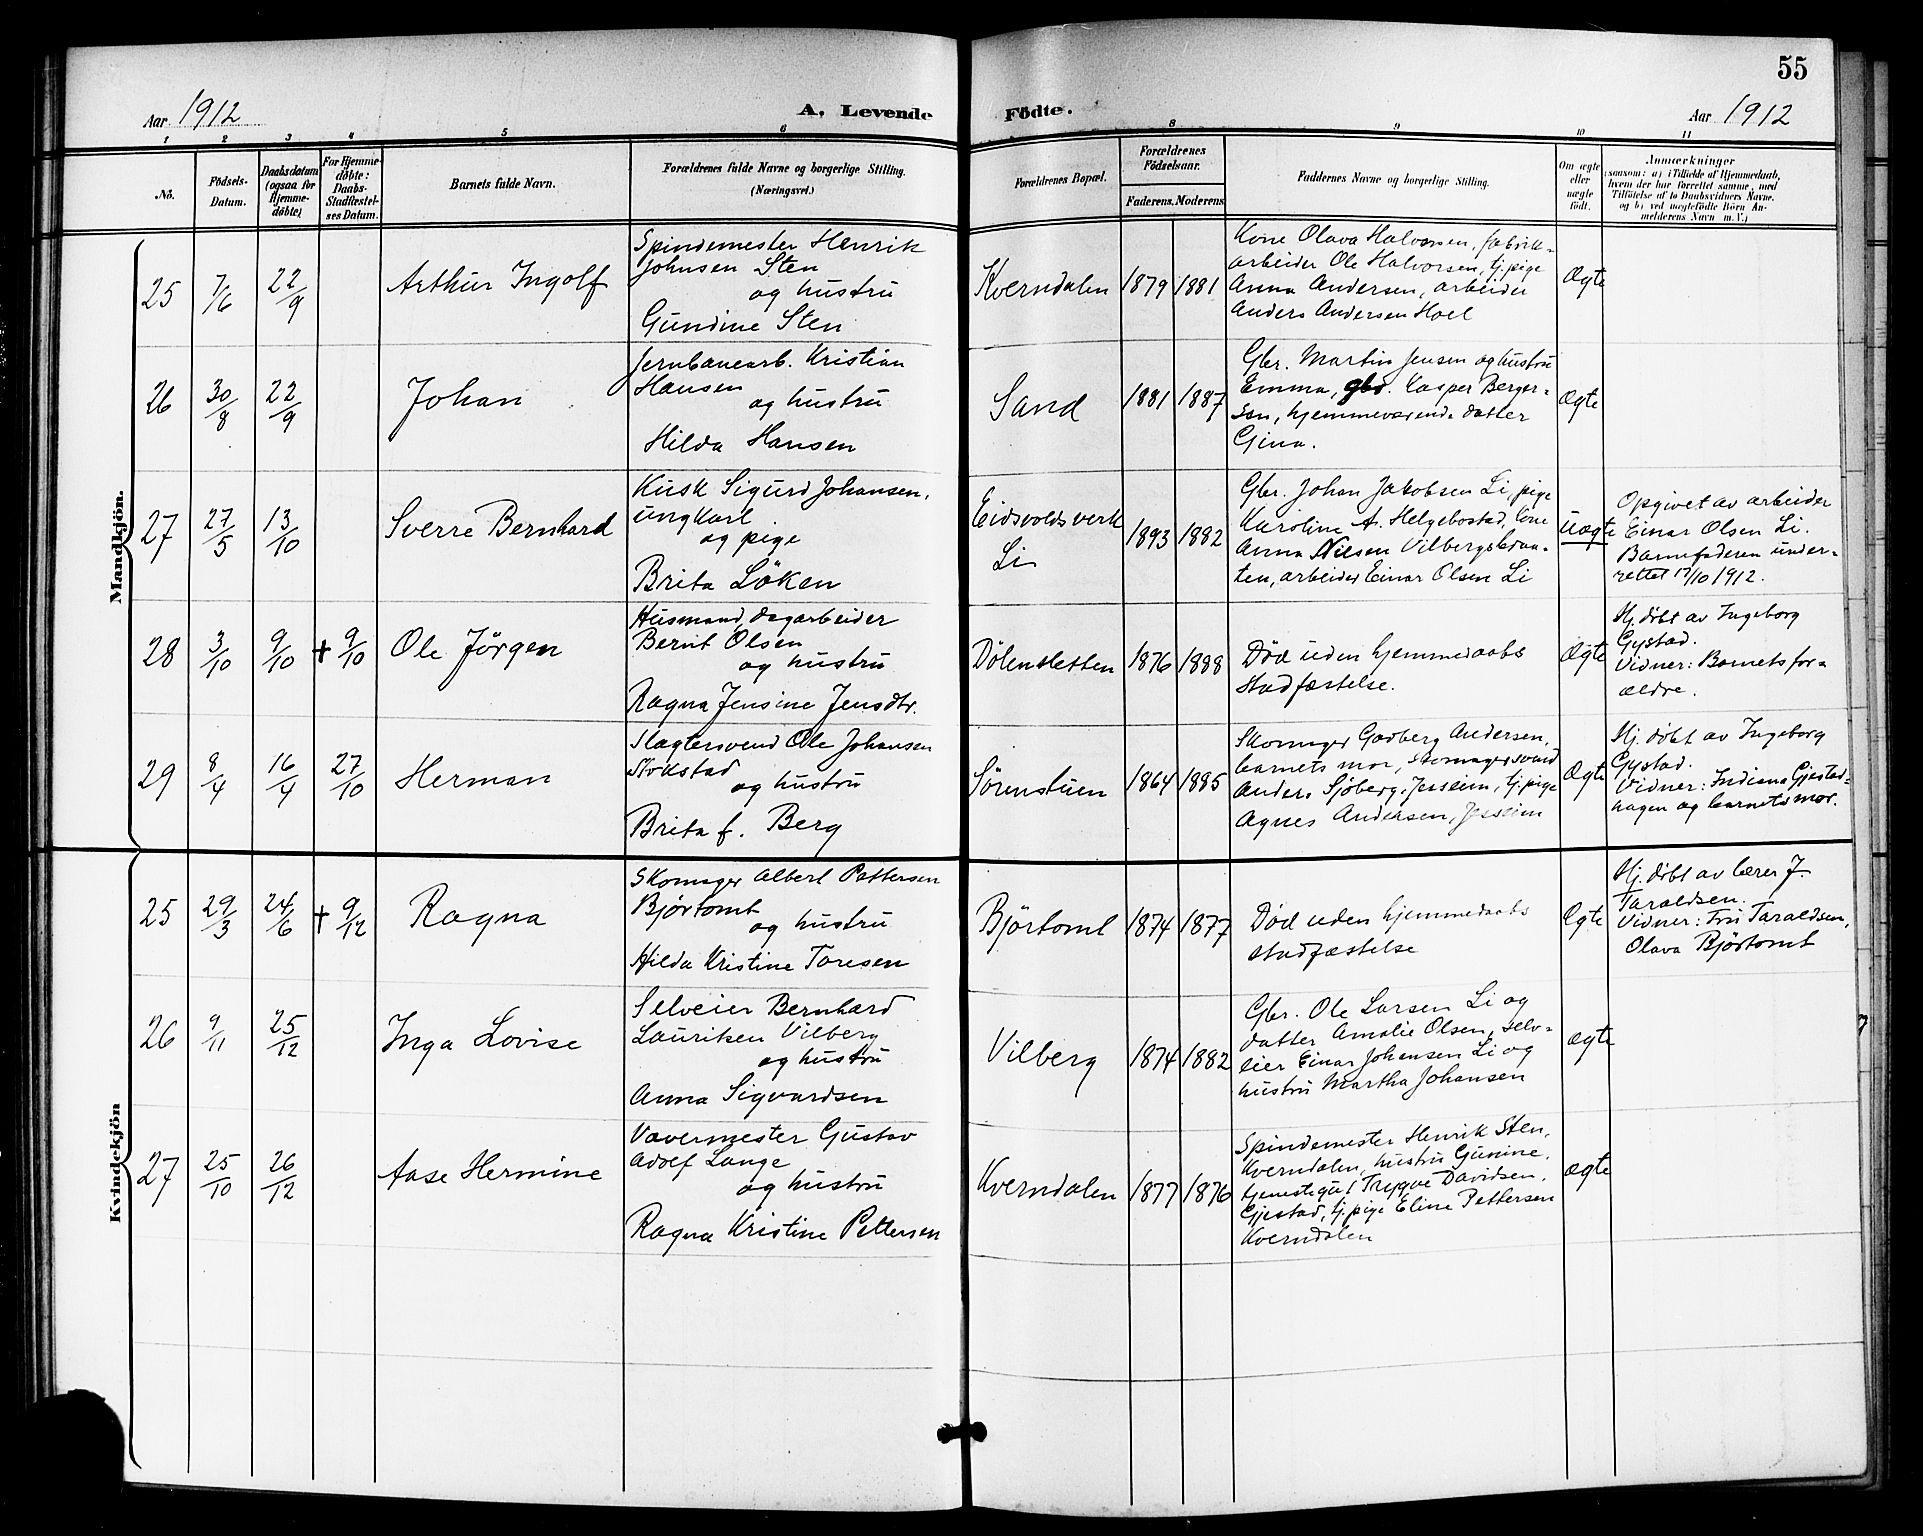 55
Aar 1912
A. Levende
Födte.
Aar 1912
1 2 3 4 5 6 8 9 10 11
No.
Födsels-
Datum.
Daabsdatum
(ogsaa for
Hjemme-
döbte)
For Hjemme-
döbte:
Daabs-
Stadfæstel-
ses Datum.
Barnets fulde Navn.
Forældrenes fulde Navne og borgerlige Stilling.
(Næringsvei.)
Forældrenes Bopæl.
Forældrenes
Födselsaar.
Faderens. Moderens
Faddernes Navne og borgerlige Stilling.
Om ægte
eller
uægte
födt.
Anmærkninger
(saasom: a) i Tilfælde af Hjemmedaab,
hvem der har forrettet samme, med
Tilföielse af to Daabsvidners Navne.
og b) ved uægtefödte Börn An-
melderens Navn m. V.)
Mandkjön.
25
7/6
22/9
Arthur Ingolf
Spindemester Henrik
Johnsen Sten
og hustru
Gundine Sten
Kverndalen
1879 1881
Kone Olava Halvorsen, fabrik-
arbeider Ole Halvorsen, tj. pige
Anna Andersen, arbeider
Anders Andersen Hoel
Ægte
26
30/8
22/9
Johan
Jernbanearb. Kristian
Hansen
og hustru
Hilda Hansen
Sand
1881 1887
Gbr. Martin Jensen og hustru
Emma, gbr. Kasper Berger-
sen, hjemmeværende datter
Gina.
Ægte
27
27/5
13/10
Sverre Bernhard
Kusk Sigurd Johansen,
ungkarl
og pige
Brita Löken
Eidsvolds verk
Li
1893 1882
Gbr. Johan Jakobsen Li, pige
Karoline A. Helgebostad, kone
Anna Nilsen Vilbergsbraa-
ten, arbeider Einar Olsen Li
Uægte
Opgivet av arbeider
Einar Olsen Li.
Barnefaderen under-
rettet 17/10 1912.
28
3/10
9/10
† 9/10
Ole Jörgen
Husmand, dagarbeider
Bernt Olsen
og hustru
Ragna Jensine Jensdtr.
Dölensletten
1876 1888
Död uden hjemmedaabs
stadfæstelse.
Ægte
Hj. döbt av Ingeborg
Gystad.
Vidner: Barnets for-
ældre.
29
8/4
16/4
27/10
Herman
Slagtersvend Ole Johansen
Stokstad
og hustru
Brita f. Berg
Sörenstuen
1864 1885
Skomager Godberg Andersen,
barnets mor, skomagersvend
Anders Sjöberg, Jessheim, tj. pige
Agnes Andersen, Jessheim
Ægte
Hj. döbt av Ingeborg
Gystad.
Vidner: Indiana Gjestad-
hagen og barnets mor.
Kvindekjön
25
29/3
24/6
† 9/12
Ragna
Skomager Albert Pettersen
Björtomt
og hustru
Hilda Kristine Toresen
Björtomt
1874 1877
Död uden hjemmedaabs
stadfæstelse
Ægte
Hj. döbt av lærer J.
Taraldsen.
Vidner: Fru Taraldsen,
Olava Björtomt
26
9/11
25/12
Inga Lovise
Selveier Bernhard
Lauritsen Vilberg
og hustru
Anna Sigvardsen
Vilberg
1874 1882
Gbr. Ole Larsen Li og
datter Amalie Olsen, selv-
eier Einar Johansen Li og
hustru Martha Johansen
ægte
27
25/10
26/12
Aase Hermine
Vævermester Gustav
Adolf Lange
og hustru
Ragna Kristine Pettersen
Kverndalen
1877 1876
Spindemester Henrik Sten,
Kverndalen, hustru Gunine,
tjenestegut Trygve Davidsen,
Gjestad, tj. pige Eline Pettersen
Kverndalen
ægte